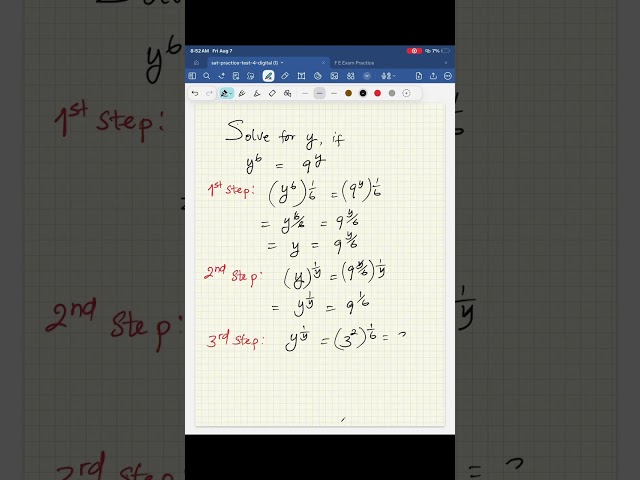 8:52AM Fri Aug 7
7%
sat-practice-test-4-digital (1)
F E Exam Practice
Solve for y, if
y^6 = 9^y
1st Step: (y^6)^1/6 = (9^y)^1/6
= y^6/6 = 9^y/6
= y = 9^y/6
2nd Step: (y)^1/y = (9^y/6)^1/y
= y^1/y = 9^1/6
3rd Step: y^1/y = (3^2)^1/6 =